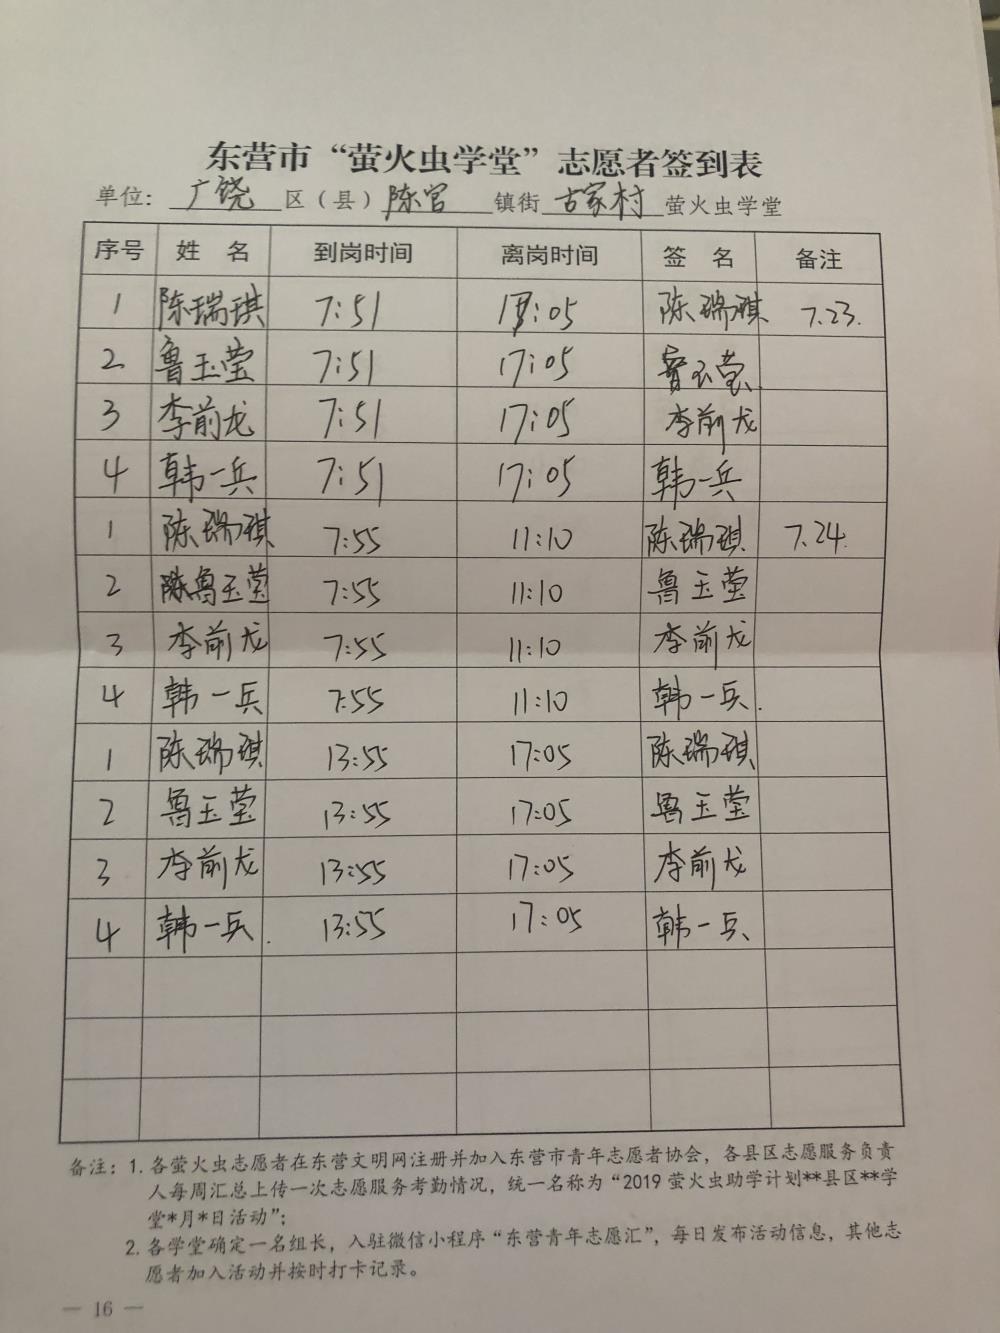 东营市“萤火虫学堂”志愿者签到表
单位：广饶区（县）陈官镇街古家村萤火虫学堂
序号 姓 名 到岗时间 离岗时间 签 名 备注
1 陈瑞琪 7:51 17:05 陈瑞琪 7.23.
2 鲁玉莹 7:51 17:05 鲁玉莹
3 李前龙 7:51 17:05 李前龙
4 韩一兵 7:51 17:05 韩一兵
1 陈瑞琪 7:55 11:10 陈瑞琪 7.24.
2 鲁玉莹 7:55 11:10 鲁玉莹
3 李前龙 7:55 11:10 李前龙
4 韩一兵 7:55 11:10 韩一兵.
1 陈瑞琪 13:55 17:05 陈瑞琪
2 鲁玉莹 13:55 17:05 鲁玉莹
3 李前龙 13:55 17:05 李前龙
4 韩一兵. 13:55 17:05 韩一兵
备注：1. 各萤火虫志愿者在东营文明网注册并加入东营市青年志愿者协会，各县区志愿服务负责
人每周汇总上传一次志愿服务考勤情况，统一名称为“2019 萤火虫助学计划**县区**学
堂*月*日活动”；
2. 各学堂确定一名组长，入驻微信小程序“东营青年志愿汇”，每日发布活动信息，其他志
愿者加入活动并按时打卡记录。
— 16 —